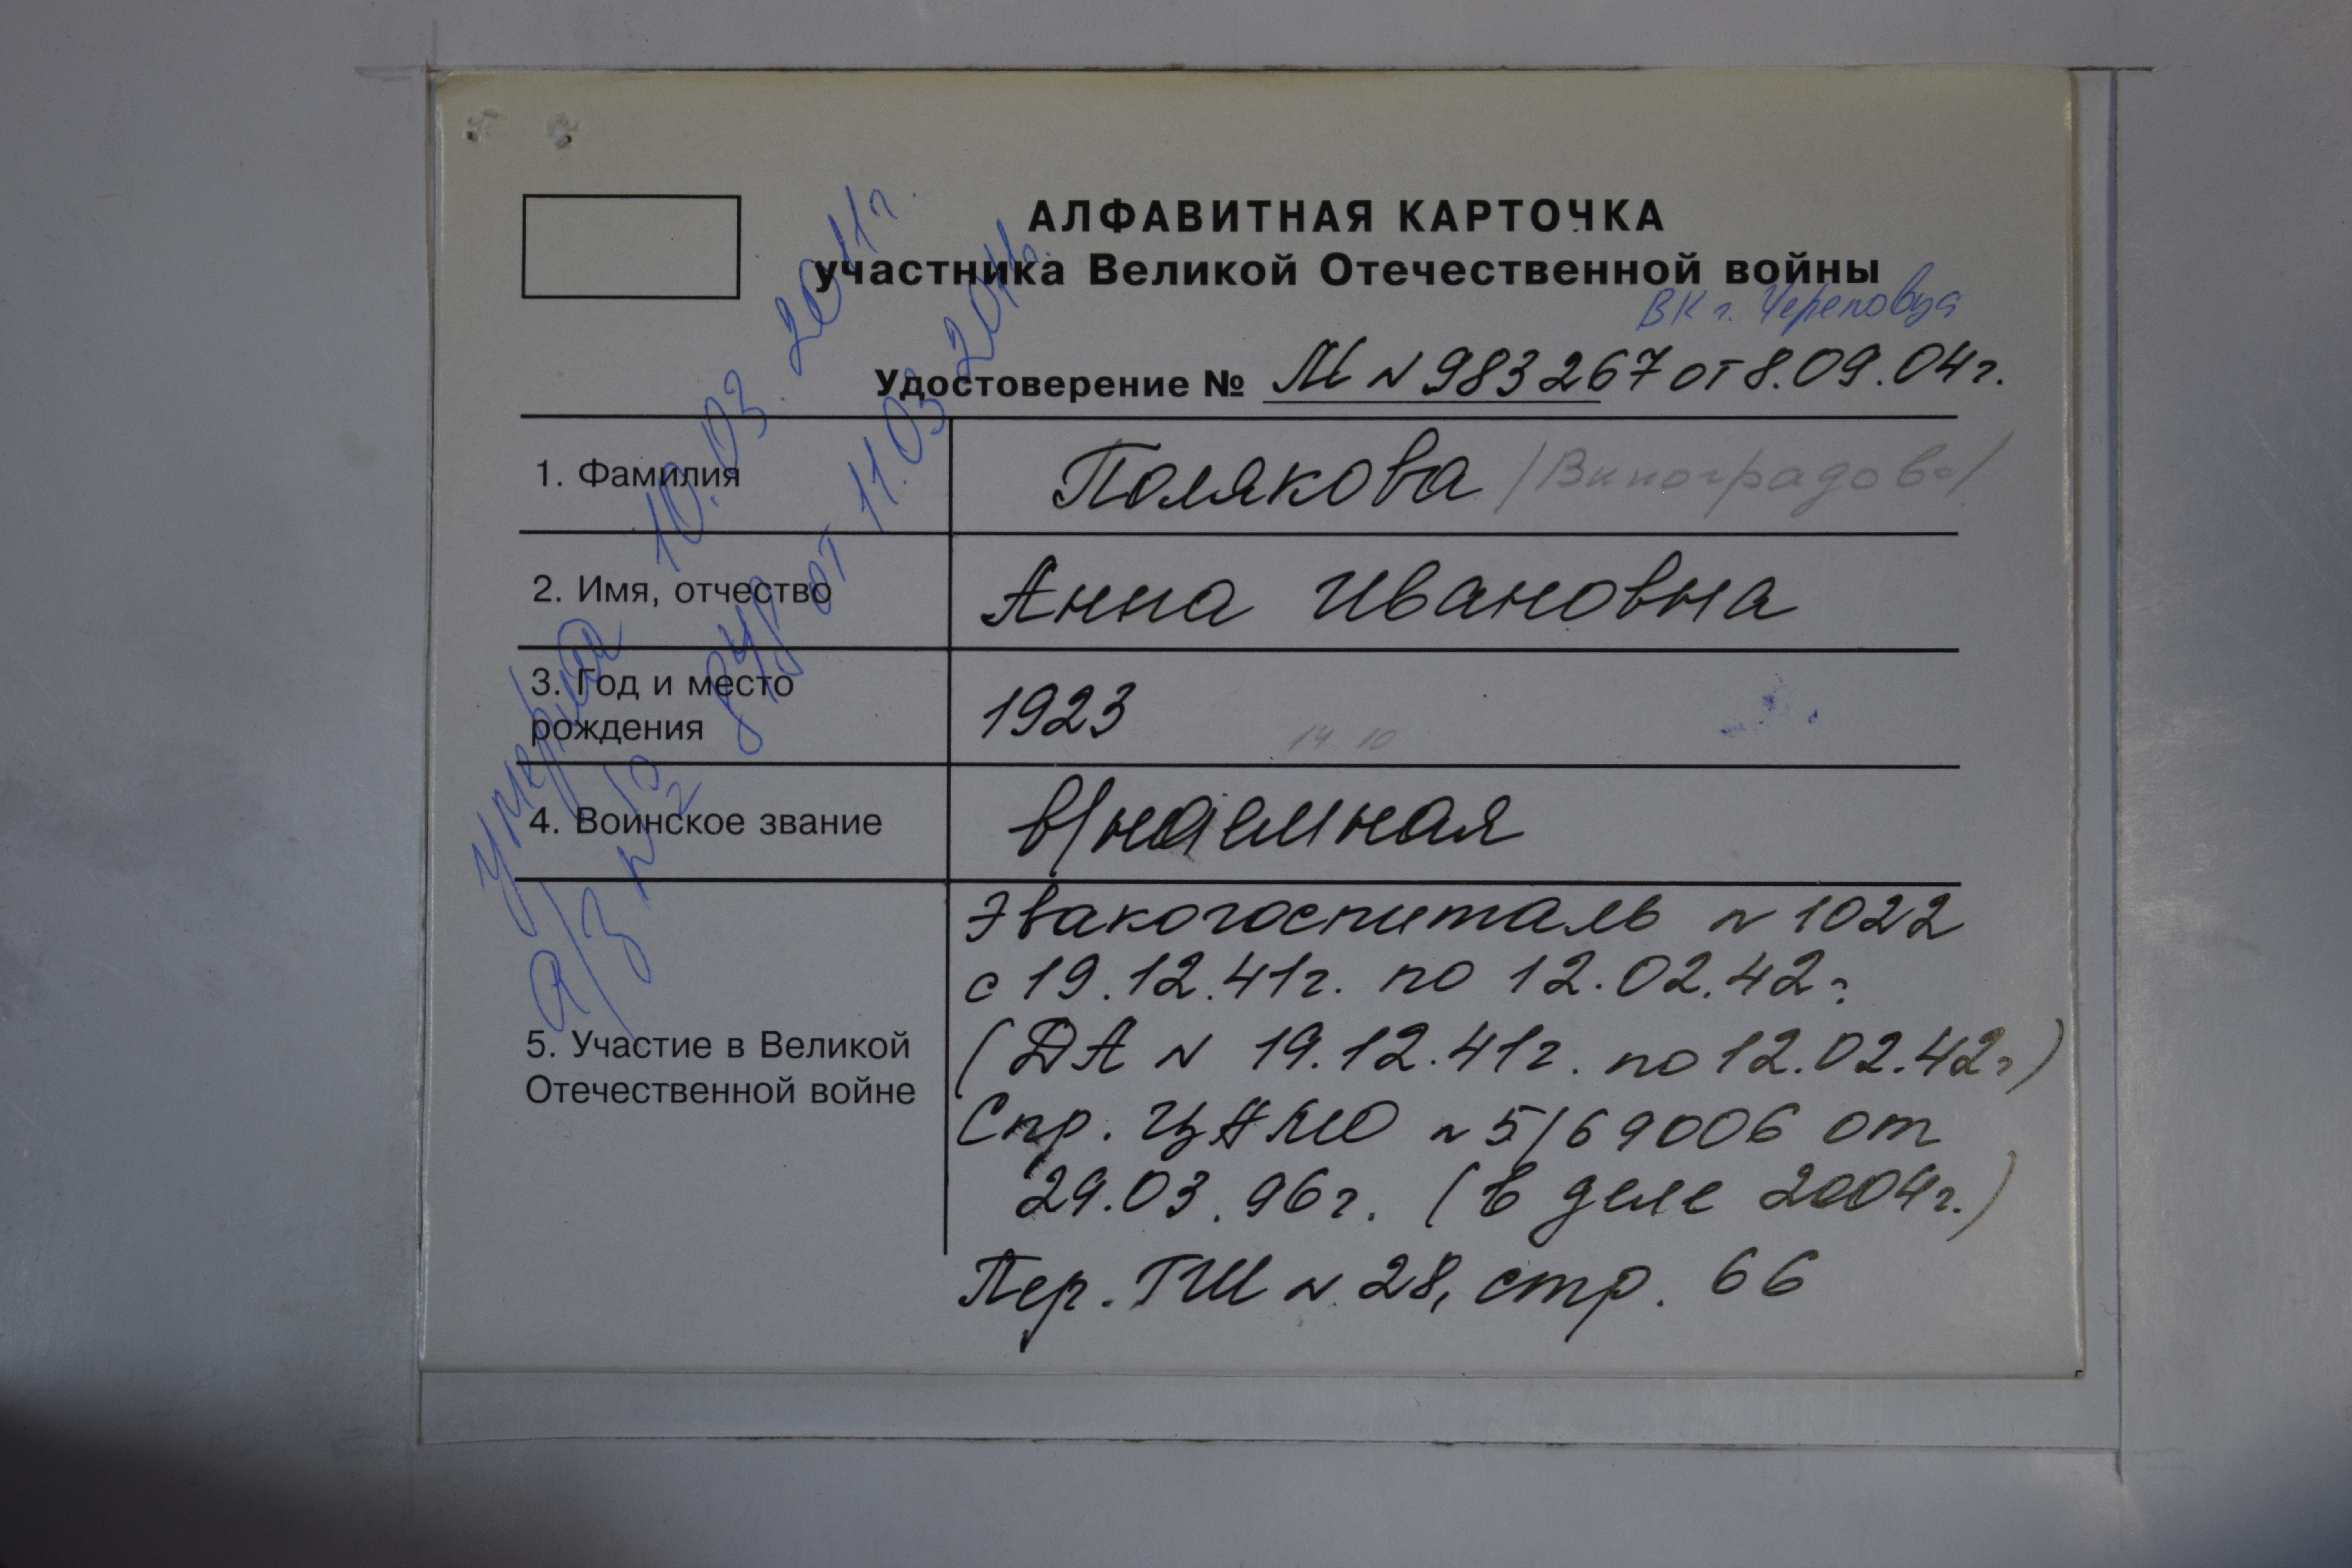 АЛФАВИТНАЯ КАРТОЧКА
участника Великой Отечественной войны
ВК г. Череповца
Удостоверение № М N 983267 от 8.09.04г.
1. Фамилия
Полякова /Виноградова/
2. Имя, отчество
Анна Ивановна
3. Год и место
рождения
1923
14 10
4. Воинское звание
в/наемная
5. Участие в Великой
Отечественной войне
Эвакогоспиталь N 1022
с 19.12.41г. по 12.02.42г
(ДА N 19.12.41г. по 12.02.42г)
Спр. ЦАМО N 5/69006 от
29.03.96г. (в деле 2004г.)
Пер. ГШ N 28, стр. 66
умерла 10.03.2011г.
а/з от 11.03.2011г.